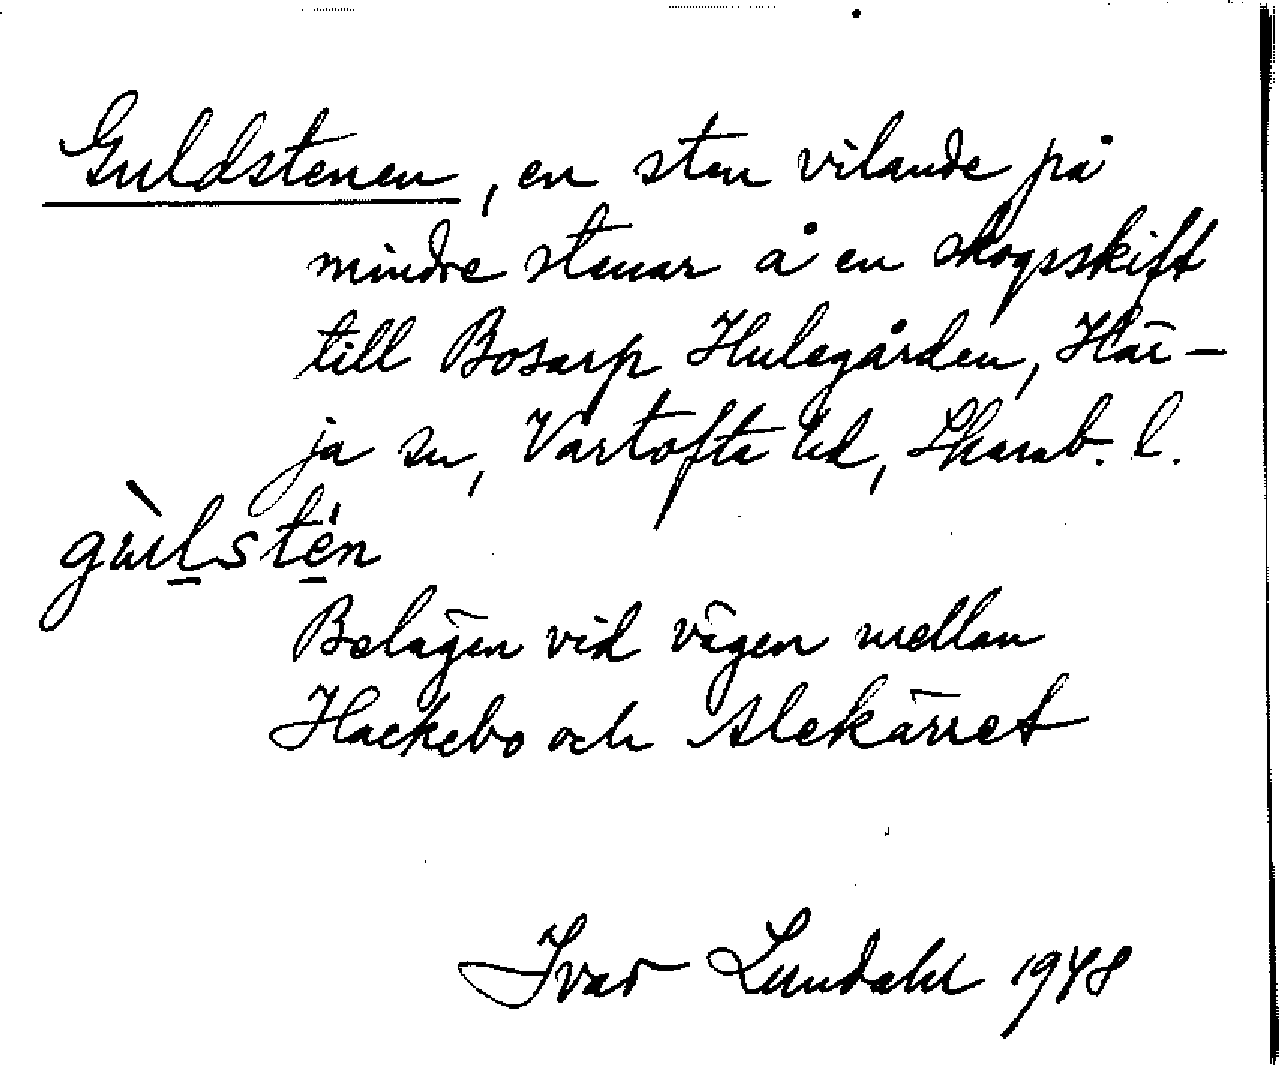 Guldstenen, en sten vilande på
mindre stenar å en skogsskift
till Bosarp Hulegården, Här-
ja sn, Vartofta hd, Skarab. l.
gùlstén
Belägen vid vägen mellan
Hackebo och Alekärret
Ivar Lundahl 1948